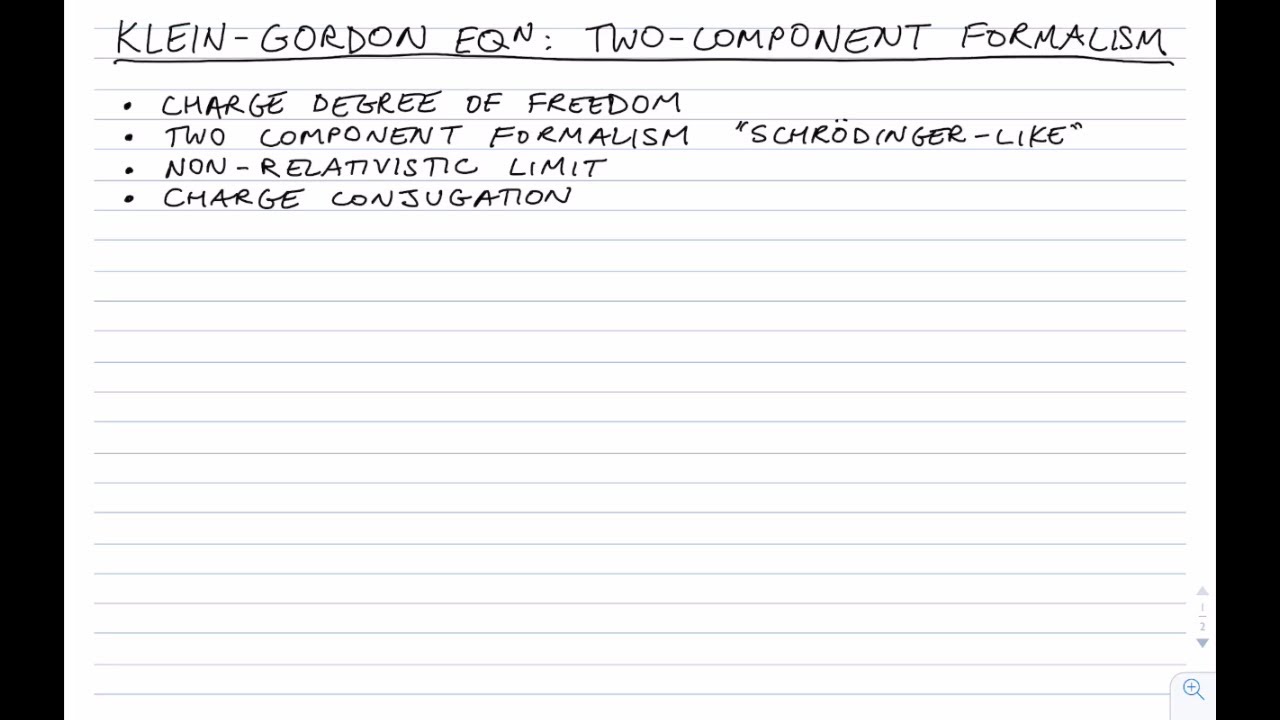 KLEIN-GORDON EQN: TWO-COMPONENT FORMALISM
• CHARGE DEGREE OF FREEDOM
• TWO COMPONENT FORMALISM "SCHRÖDINGER-LIKE"
• NON-RELATIVISTIC LIMIT
• CHARGE CONJUGATION
1
2